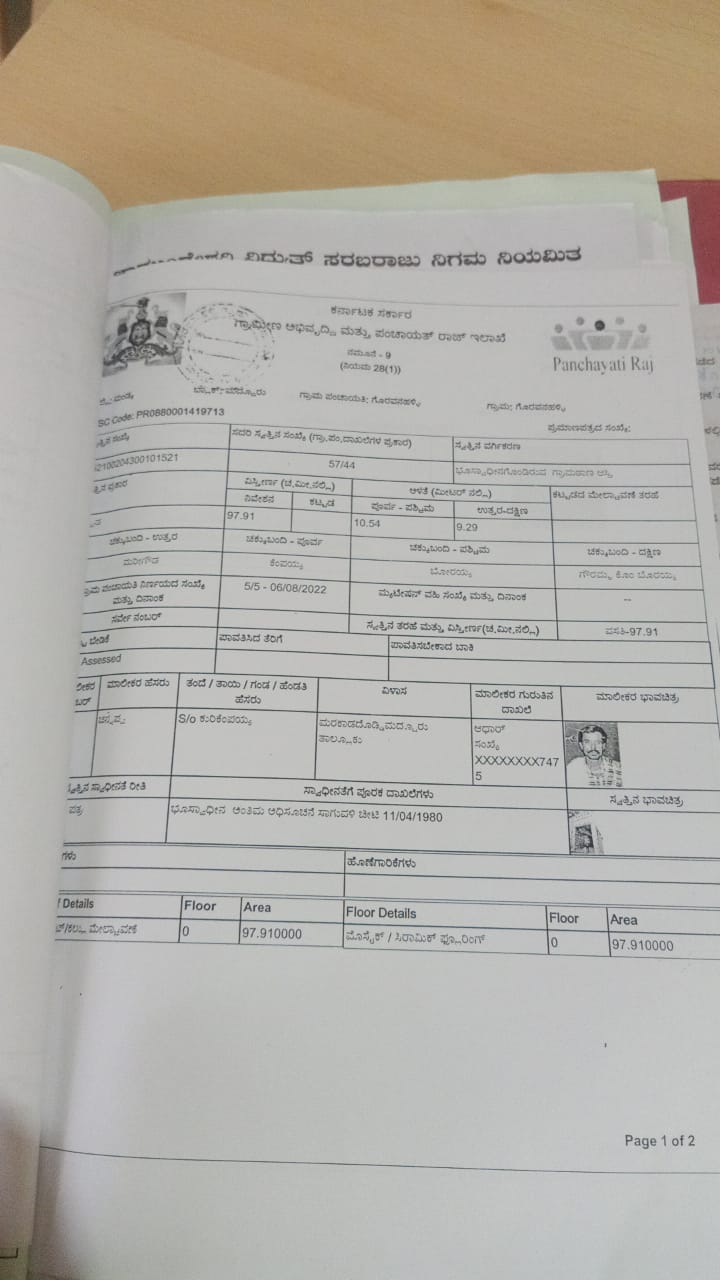 ವಿದ್ಯುತ್ ಸರಬರಾಜು ನಿಗಮ ನಿಯಮಿತ
ಕರ್ನಾಟಕ ಸರ್ಕಾರ
ಗ್ರಾಮೀಣ ಅಭಿವೃದ್ಧಿ ಮತ್ತು ಪಂಚಾಯತ್ ರಾಜ್ ಇಲಾಖೆ
ನಮೂನೆ - 9
(ನಿಯಮ 28(1))
Panchayati Raj
ಬ್ಲಾಕ್: ಮದ್ದೂರು ಗ್ರಾಮ ಪಂಚಾಯತಿ: ಗೊರವನಹಳ್ಳಿ ಗ್ರಾಮ: ಗೊರವನಹಳ್ಳಿ
SC Code: PR0880001419713 ಪ್ರಮಾಣಪತ್ರದ ಸಂಖ್ಯೆ:
ಸದರಿ ಸ್ವತ್ತಿನ ಸಂಖ್ಯೆ (ಗ್ರಾ.ಪಂ.ದಾಖಲೆಗಳ ಪ್ರಕಾರ) ಸ್ವತ್ತಿನ ವರ್ಗೀಕರಣ
2100204300101521 57/44 ಭೂಸ್ವಾಧೀನಗೊಂಡಿರುವ ಗ್ರಾಮಠಾಣ ಆಸ್ತಿ
ಪ್ರಕಾರ ವಿಸ್ತೀರ್ಣ (ಚ.ಮೀ.ನಲ್ಲಿ) ಅಳತೆ (ಮೀಟರ್ ನಲ್ಲಿ) ಕಟ್ಟಡದ ಮೇಲ್ಛಾವಣಿ ತರಹೆ
ನಿವೇಶನ ಕಟ್ಟಡ ಪೂರ್ವ - ಪಶ್ಚಿಮ ಉತ್ತರ-ದಕ್ಷಿಣ
97.91 10.54 9.29
ಚಕ್ಕುಬಂದಿ - ಉತ್ತರ ಚಕ್ಕುಬಂದಿ - ಪೂರ್ವ ಚಕ್ಕುಬಂದಿ - ಪಶ್ಚಿಮ ಚಕ್ಕುಬಂದಿ - ದಕ್ಷಿಣ
ಮರೀಗೌಡ ಕೆಂಪಯ್ಯ ಬೋರಯ್ಯ ಗೌರಮ್ಮ ಕೊಂ ಬೋರಯ್ಯ
ಪಂಚಾಯತಿ ನಿರ್ಣಯದ ಸಂಖ್ಯೆ 5/5 - 06/08/2022 ಮ್ಯುಟೇಷನ್ ವಹಿ ಸಂಖ್ಯೆ ಮತ್ತು ದಿನಾಂಕ --
ಮತ್ತು ದಿನಾಂಕ
ಸರ್ವೇ ನಂಬರ್ ಸ್ವತ್ತಿನ ತರಹೆ ಮತ್ತು ವಿಸ್ತೀರ್ಣ(ಚ.ಮೀ.ನಲ್ಲಿ) ವಸತಿ-97.91
ಬೇಡಿಕೆ ಪಾವತಿಸಿದ ತೆರಿಗೆ ಪಾವತಿಸಬೇಕಾದ ಬಾಕಿ
Assessed
ಮಾಲೀಕರ ಹೆಸರು ತಂದೆ / ತಾಯಿ / ಗಂಡ / ಹೆಂಡತಿ ವಿಳಾಸ ಮಾಲೀಕರ ಗುರುತಿನ ಮಾಲೀಕರ ಭಾವಚಿತ್ರ
ಹೆಸರು ದಾಖಲೆ
S/o ಕುರಿಕೆಂಪಯ್ಯ ಮರಕಾಡದೊಡ್ಡಿ,ಮದ್ದೂರು ಆಧಾರ್
ತಾಲ್ಲೂಕು ಸಂಖ್ಯೆ
XXXXXXXX747
5
ಸ್ವತ್ತಿನ ಸ್ವಾಧೀನತೆ ರೀತಿ ಸ್ವಾಧೀನತೆಗೆ ಪೂರಕ ದಾಖಲೆಗಳು ಸ್ವತ್ತಿನ ಭಾವಚಿತ್ರ
ಪತ್ರ ಭೂಸ್ವಾಧೀನ ಅಂತಿಮ ಅಧಿಸೂಚನೆ ಸಾಗುವಳಿ ಚೀಟಿ 11/04/1980
ಹೊಣೆಗಾರಿಕೆಗಳು
Details Floor Area Floor Details Floor Area
ಮೇಲ್ಛಾವಣಿ 0 97.910000 ಮೊಸೈಕ್ / ಸಿರಾಮಿಕ್ ಫ್ಲೂರಿಂಗ್ 0 97.910000
Page 1 of 2